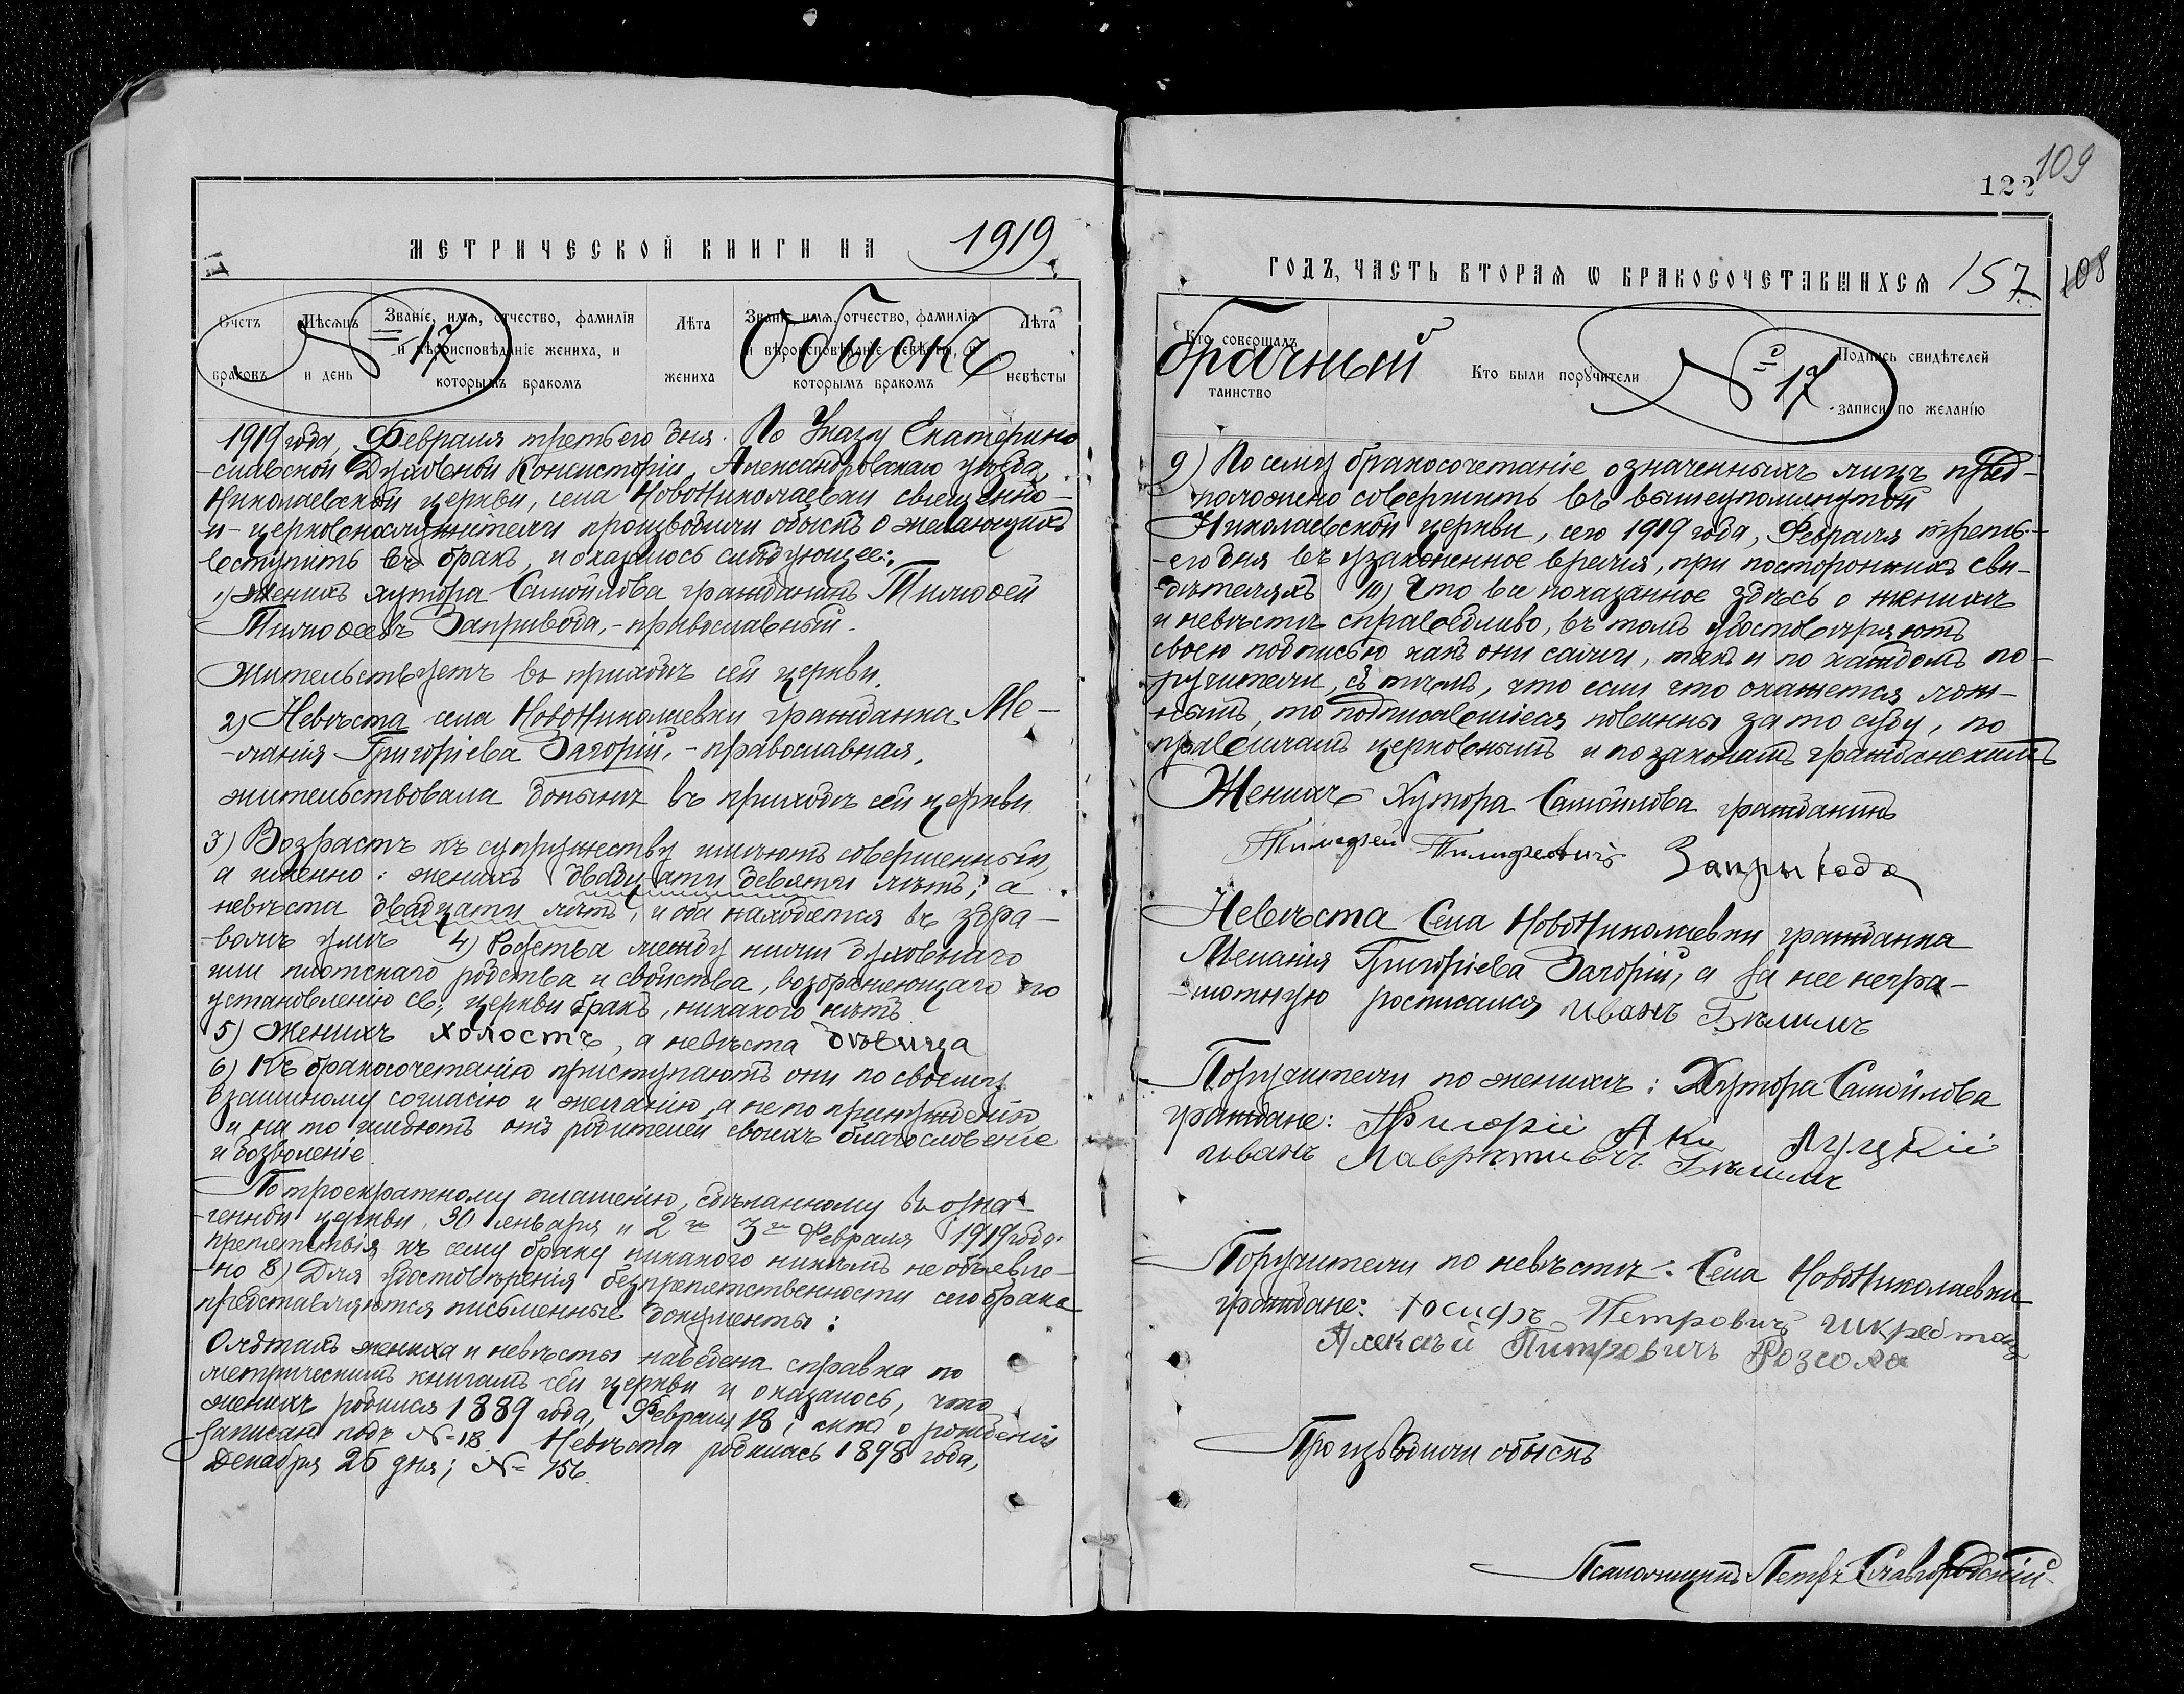 МЕТРИЧЕСКОЙ КНИГИ НА 1919
Счетъ браковъ
Мѣсяцъ и день
Званіе, имя, отчество, фамилія и вѣроисповѣданіе жениха, и которымъ бракомъ
Лѣта жениха
Званіе, имя, отчество, фамилія и вѣроисповѣданіе невѣсты, и которымъ бракомъ
Лѣта невѣсты
№ 17 Обыскъ
1919 года, Февраля третьего дня. По Указу Екатерино
-славской Духовной Консисторіи, Александровскаго уѣзда,
Николаевской церкви, села НовоНиколаевки священно-
и-церковнослужители производили обыскъ о желающихъ
вступить въ бракъ, и оказалось слѣдующее:
1) Женихъ хутора Самойлова гражданинъ Тимоѳей
Тимоѳеевъ Запривода, - православный.
Жительствуетъ въ приходѣ сей церкви.
2) Невѣста села НовоНиколаевки гражданка Ме-
-ланія Григоріева Загорій, - православная,
жительствовала донынѣ въ приходѣ сей церкви.
3) Возрастъ къ супружеству имѣютъ совершенный,
а именно: женихъ двадцати девяти лѣтъ; а
невѣста двадцати лѣтъ, и оба находятся въ здра-
-вомъ умѣ 4) Родства между ними духовнаго
или плотскаго родства и свойства, возбраняющаго по
установленію св. церкви бракъ, никакого нѣтъ
5) Женихъ холостъ, а невѣста дѣвица
6) Къ бракосочетанію приступаютъ они по своему
взаимному согласію и желанію, а не по принужденію
и на то имѣютъ отъ родителей своихъ благословеніе
и дозволеніе.
По троекратному оглашенію, сдѣланному въ озна-
-ченной церкви, 30 января и 2го 3го Февраля 1919 года
препятствія къ сему браку никакого никѣмъ не объявле-
-но 8) Для удостовѣренія безпрепятственности сего брака
представляются письменные документы:
О лѣтахъ жениха и невѣсты наведена справка по
метрическимъ книгамъ сей церкви и оказалось, что
женихъ родился 1889 года, Февраля 18; актъ о рожденіи
записанъ подъ №-18. Невѣста родилась 1898 года,
Декабря 26 дня; №- 156.
109
122
ГОДЪ, ЧАСТЬ ВТОРАЯ Ѡ БРАКОСОЧЕТАВШИХСЯ 157 108
Кто совершалъ таинство
Кто были поручители
Подпись свидѣтелей записи по желанію
брачный № 17
9) По сему бракосочетаніе означенныхъ лицъ пред-
положено совершить въ вышеупомянутой
Николаевской церкви, сего 1919 года, Февраля треть-
-его дня въ узаконенное время, при постороннихъ сви-
-дѣтеляхъ 10) Что все показанное здѣсь о женихѣ
и невѣстѣ справедливо, въ томъ удостовѣряютъ
своею подписью какъ они сами, такъ и по каждомъ по-
ручители, съ тѣмъ, что если что окажется лож-
-нымъ, то подписавшіеся повинны за то суду, по
правиламъ церковнымъ и по законамъ гражданскимъ
Женихъ Хутора Самойлова гражданинъ
Тимофей Тимофеевичъ Запрывода
Невѣста Села НовоНиколаевки гражданка
Меланія Григоріева Загорій, а за нее негра-
-мотную росписался Иванъ Бѣлимъ
Поручители по женихѣ: Хутора Самойлова
граждане: Григорій Луцкій
иванъ Бѣлимъ
Поручители по невѣстѣ: Села НовоНиколаевки
граждане: Іосифъ Петровичъ
Алексѣй Питровичъ
Производили обыскъ
Псаломщикъ Петръ Славгородскій